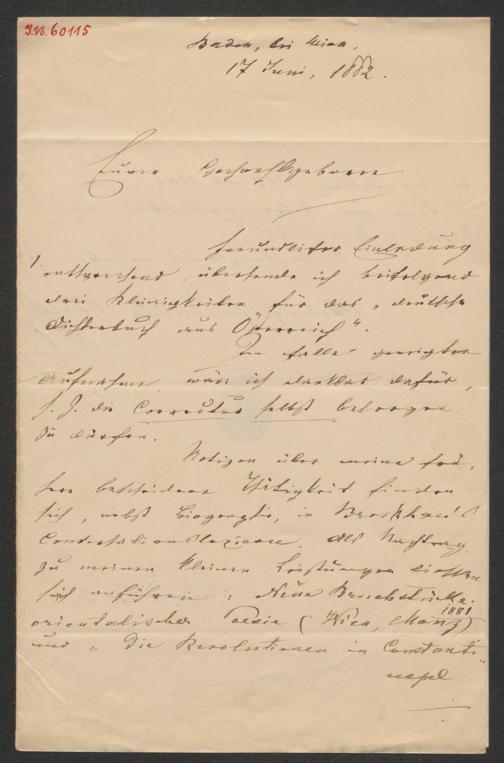 I.N. 60115
Baden, bei Wien,
17 Juni, 1882.
Euer Hochwohlgeboren
freundlicher Einladung
entsprechend, übersende ich beifolgend
drei Kleinigkeiten für das „deutsche
Dichterbuch aus Österreich“.
Im Falle geneigter
Aufnahme, wäre ich dankbar dafür,
s. Z. die Correctur selbst besorgen
zu dürfen.
Notizen über meine frü-
here bescheidene Thätigkeit finden
sich, nebst Biographie, in Brockhaus'
Conversationslexicon. Als Nachtrag
zu meinen kleinen Leistungen ließen
sich anführen: Neue Bruchstücke
orientalischer Poesie (Wien, Manz, 1881)
und „Die Revolutionen in Constanti-
nopel“